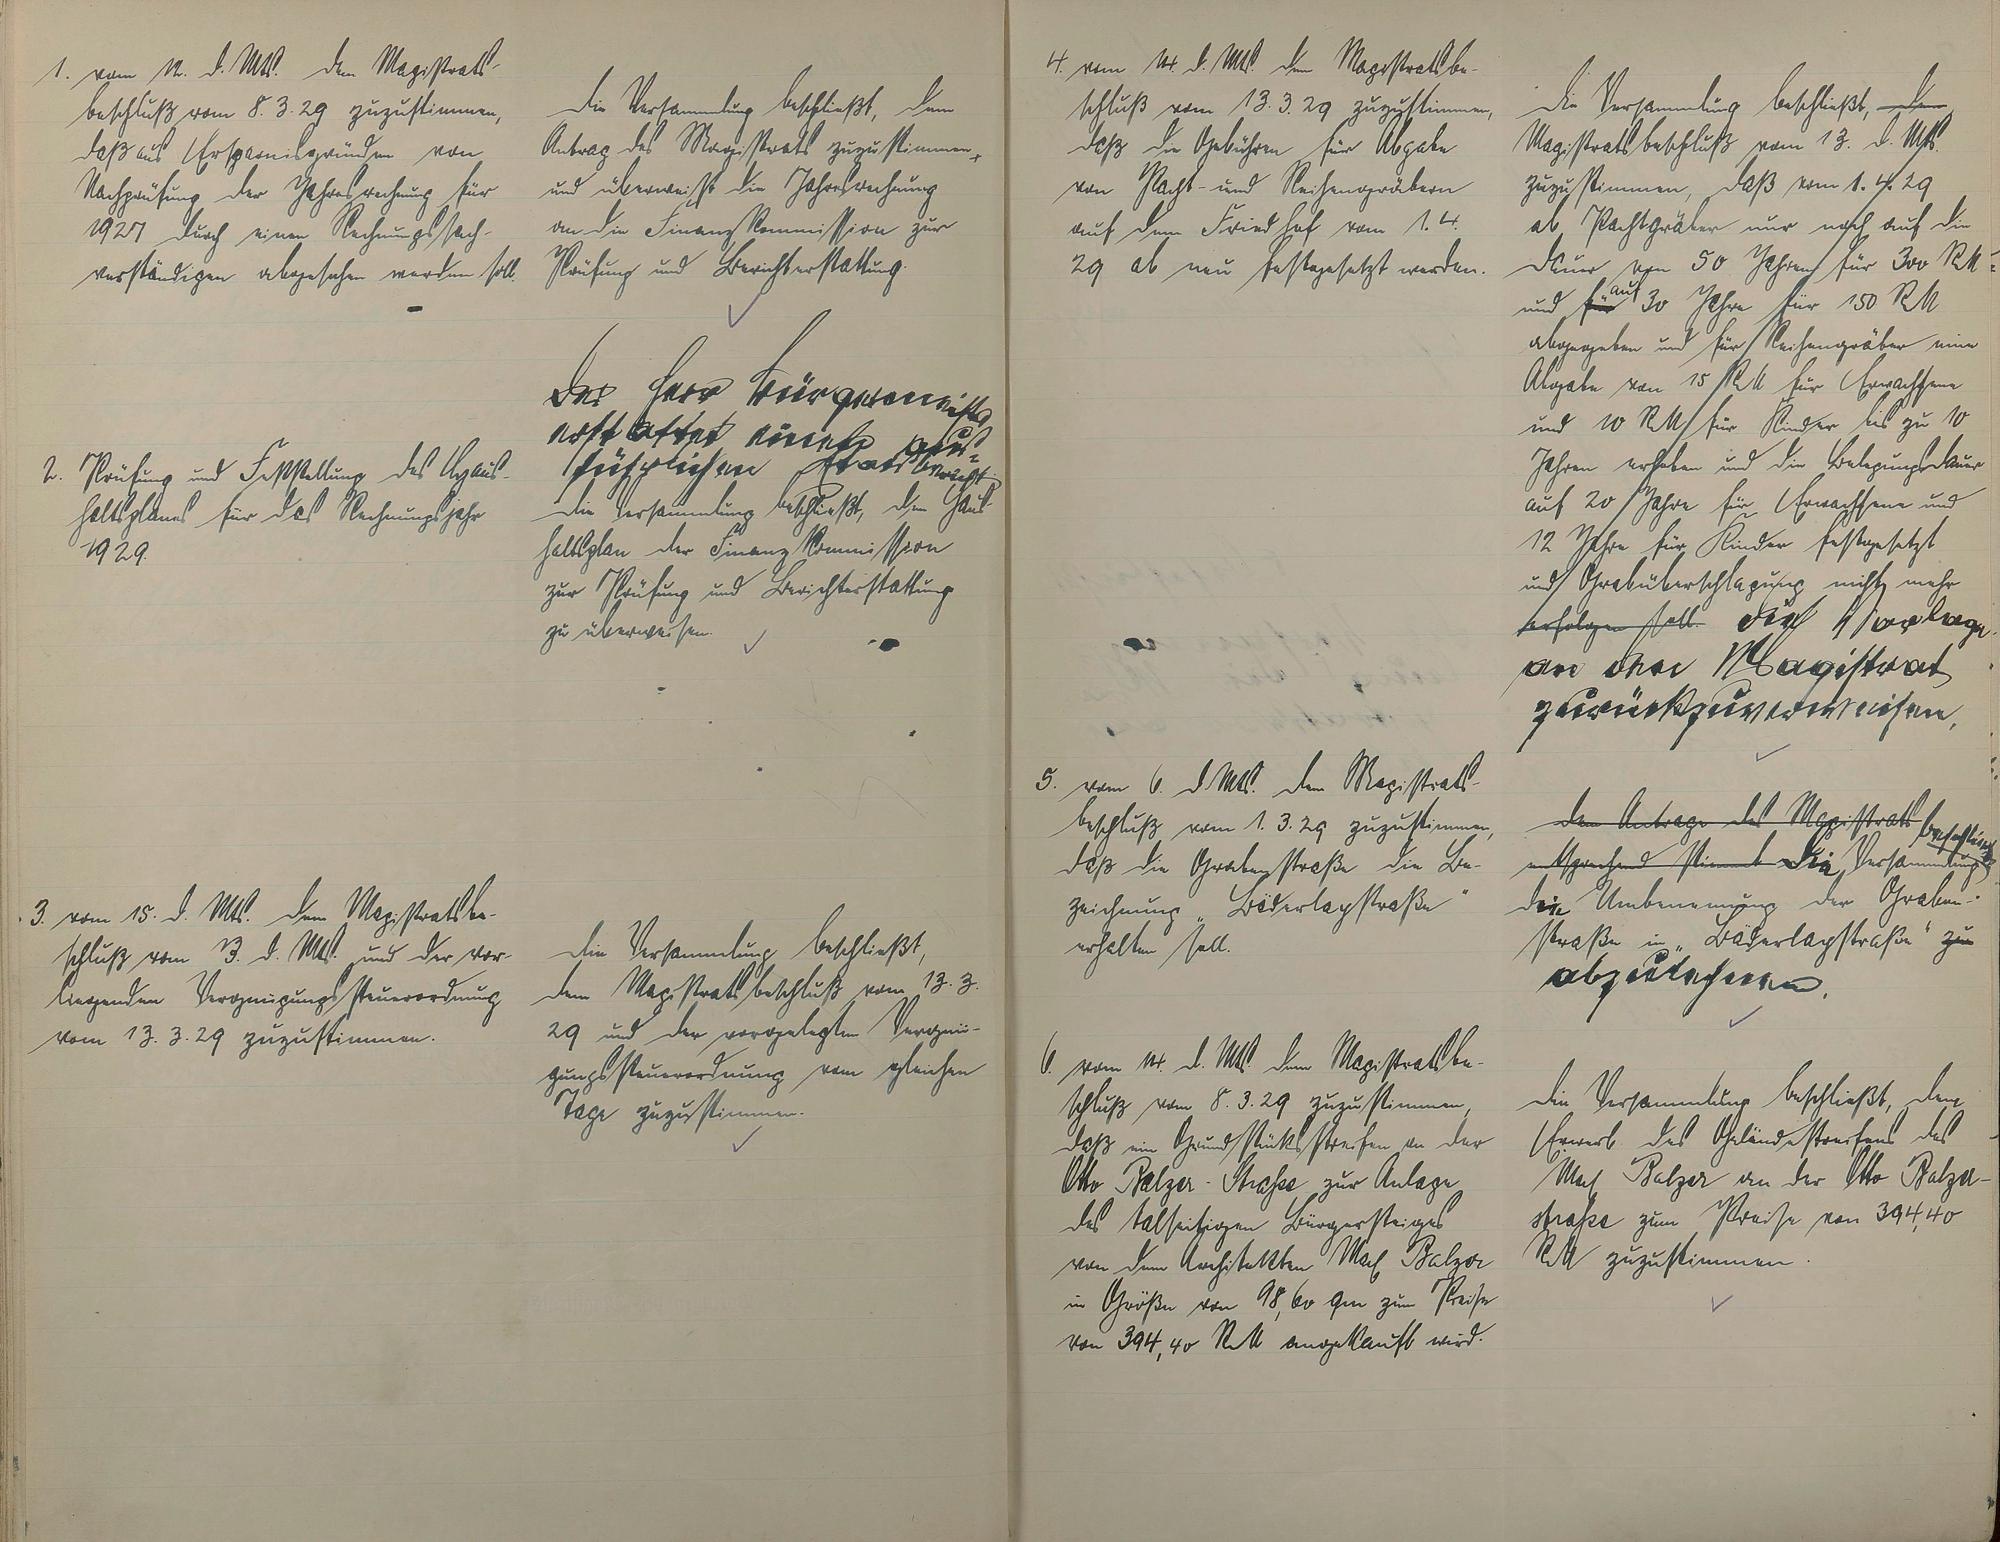 1. vom 12. d. Mts. dem Magistrats-
beschluß vom 8.3.29 zuzustimmen,
daß aus Ersparnisgründen von
Nachprüfung der Jahresrechnung für
1927 durch einen Rechnungssach-
verständigen abgesehen werden soll.
Die Versammlung beschließt, dem
Antrag des Magistrats zuzustimmen
und überweist die Jahresrechnung
an die Finanzkommission zur
Prüfung und Berichterstattung.
2. Prüfung und Feststellung des Haus-
haltsplanes für das Rechnungsjahr
1929.
Der Herr Bürgermeister
erstattet einen aus-
führlichen Etatsbericht.
Die Versammlung beschließt, den Haus-
haltsplan der Finanzkommission
zur Prüfung und Berichterstattung
zu überweisen.
3. vom 15. d. Mts. dem Magistratsbe-
schluß vom 13. d. Mts. und der vor-
liegenden Vergnügungssteuerordnung
vom 13.3.29 zuzustimmen.
Die Versammlung beschließt,
dem Magistratsbeschluß vom 13.3.
29 und der vorgelegten Vergnü-
gungssteuerordnung vom gleichen
Tage zuzustimmen.
4. vom 14. d. Mts. dem Magistratsbe-
schluß vom 13.3.29 zuzustimmen,
daß die Gebühren für Abgabe
von Pacht- und Reihengräbern
auf dem Friedhof vom 1.4.
29 ab neu festgesetzt werden.
Die Versammlung beschließt, dem
Magistratsbeschluß vom 13. d. Mts.
zuzustimmen, daß vom 1.4.29
ab Pachtgräber nur noch auf die
Dauer von 50 Jahren für 300 RM
und für auf 30 Jahre für 150 RM
abgegeben und für Reihengräber eine
Abgabe von 15 RM für Erwachsene
und 10 RM für Kinder bis zu 10
Jahren erhoben und die Belegungsdauer
auf 20 Jahre für Erwachsene und
12 Jahre für Kinder festgesetzt
und Grabüberschlagung nicht mehr
erfolgen soll. die Vorlage
an den Magistrat
zurückzuverweisen.
5. vom 6. d. Mts. dem Magistrats-
beschluß vom 1.3.29 zuzustimmen,
daß die Grabenstraße die Be-
zeichnung „Bäderlaystraße"
erhalten soll.
Dem Antrage des Magistrats beschließt
entsprechend stimmt Die Versammlung
die Umbenennung der Graben-
straße in „Bäderlaystraße" zu
abzulehnen.
6. vom 14. d. Mts. dem Magistratsbe-
schluß vom 8.3.29 zuzustimmen,
daß ein Grundstücksstreifen an der
Otto Balzer-Straße zur Anlage
des talseitigen Bürgersteiges
von dem Architekten Max Balzer
in Größe von 98,60 qm zum Preise
von 394,40 RM angekauft wird.
Die Versammlung beschließt, dem
Erwerb des Geländestreifens des
Max Balzer an der Otto Balzer-
straße zum Preise von 394,40
RM zuzustimmen.